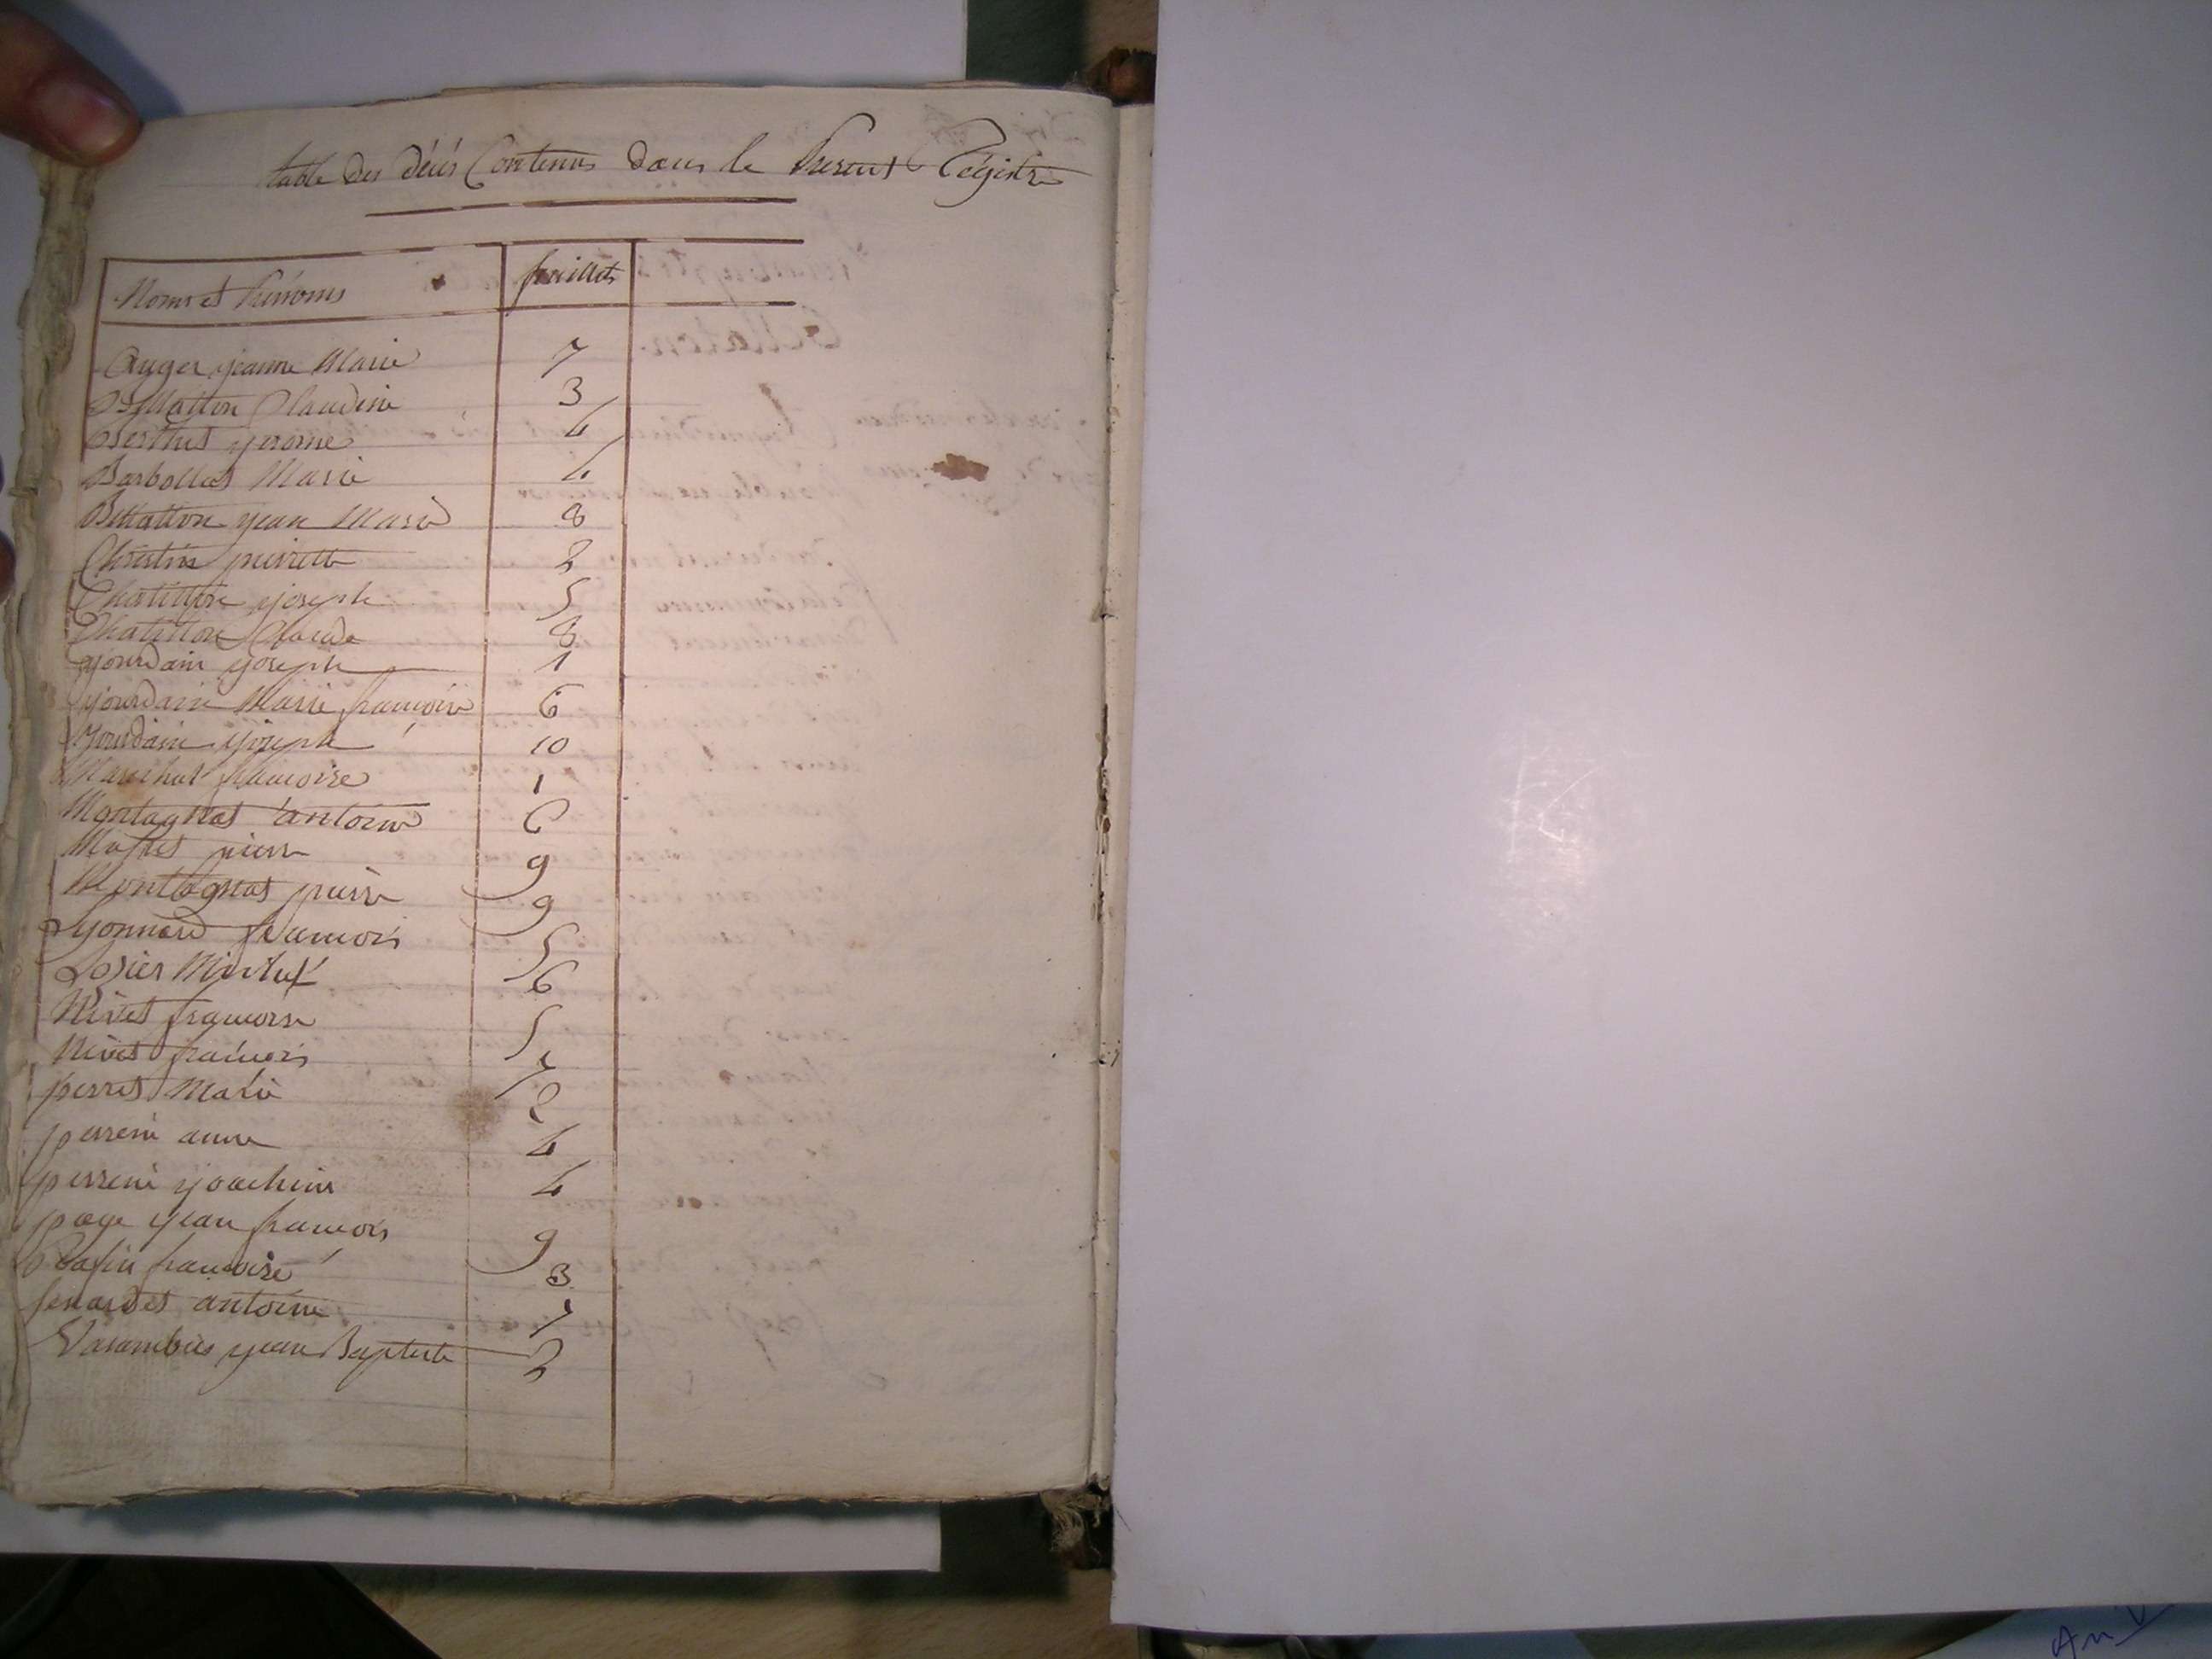 table des décès Contenus dans le Present Régistre
Noms et Prénoms feuillets
Auger jeanne Marie 7
Bellatton Claudine 3
Berthet jerome 4
Barbollat Marie 4
Bellatton jean Marie 8
Christin pierrette 2
Chatillon joseph 5
Chatillon Claude 8
jourdain joseph 1
jourdain Marie francoise 6
jourdain joseph 10
Marechal francoise 1
Montagnat antoine 6
pierre 9
Montagnat pierre 9
Lyonnard francois 5
6
Nivet francoise 5
Nivet francois
perret Marie 2
perrein anne 4
perrein joachim 4
page jean francois 9
francoise 3
antoine 7
Varambier jean Baptiste 2
An V